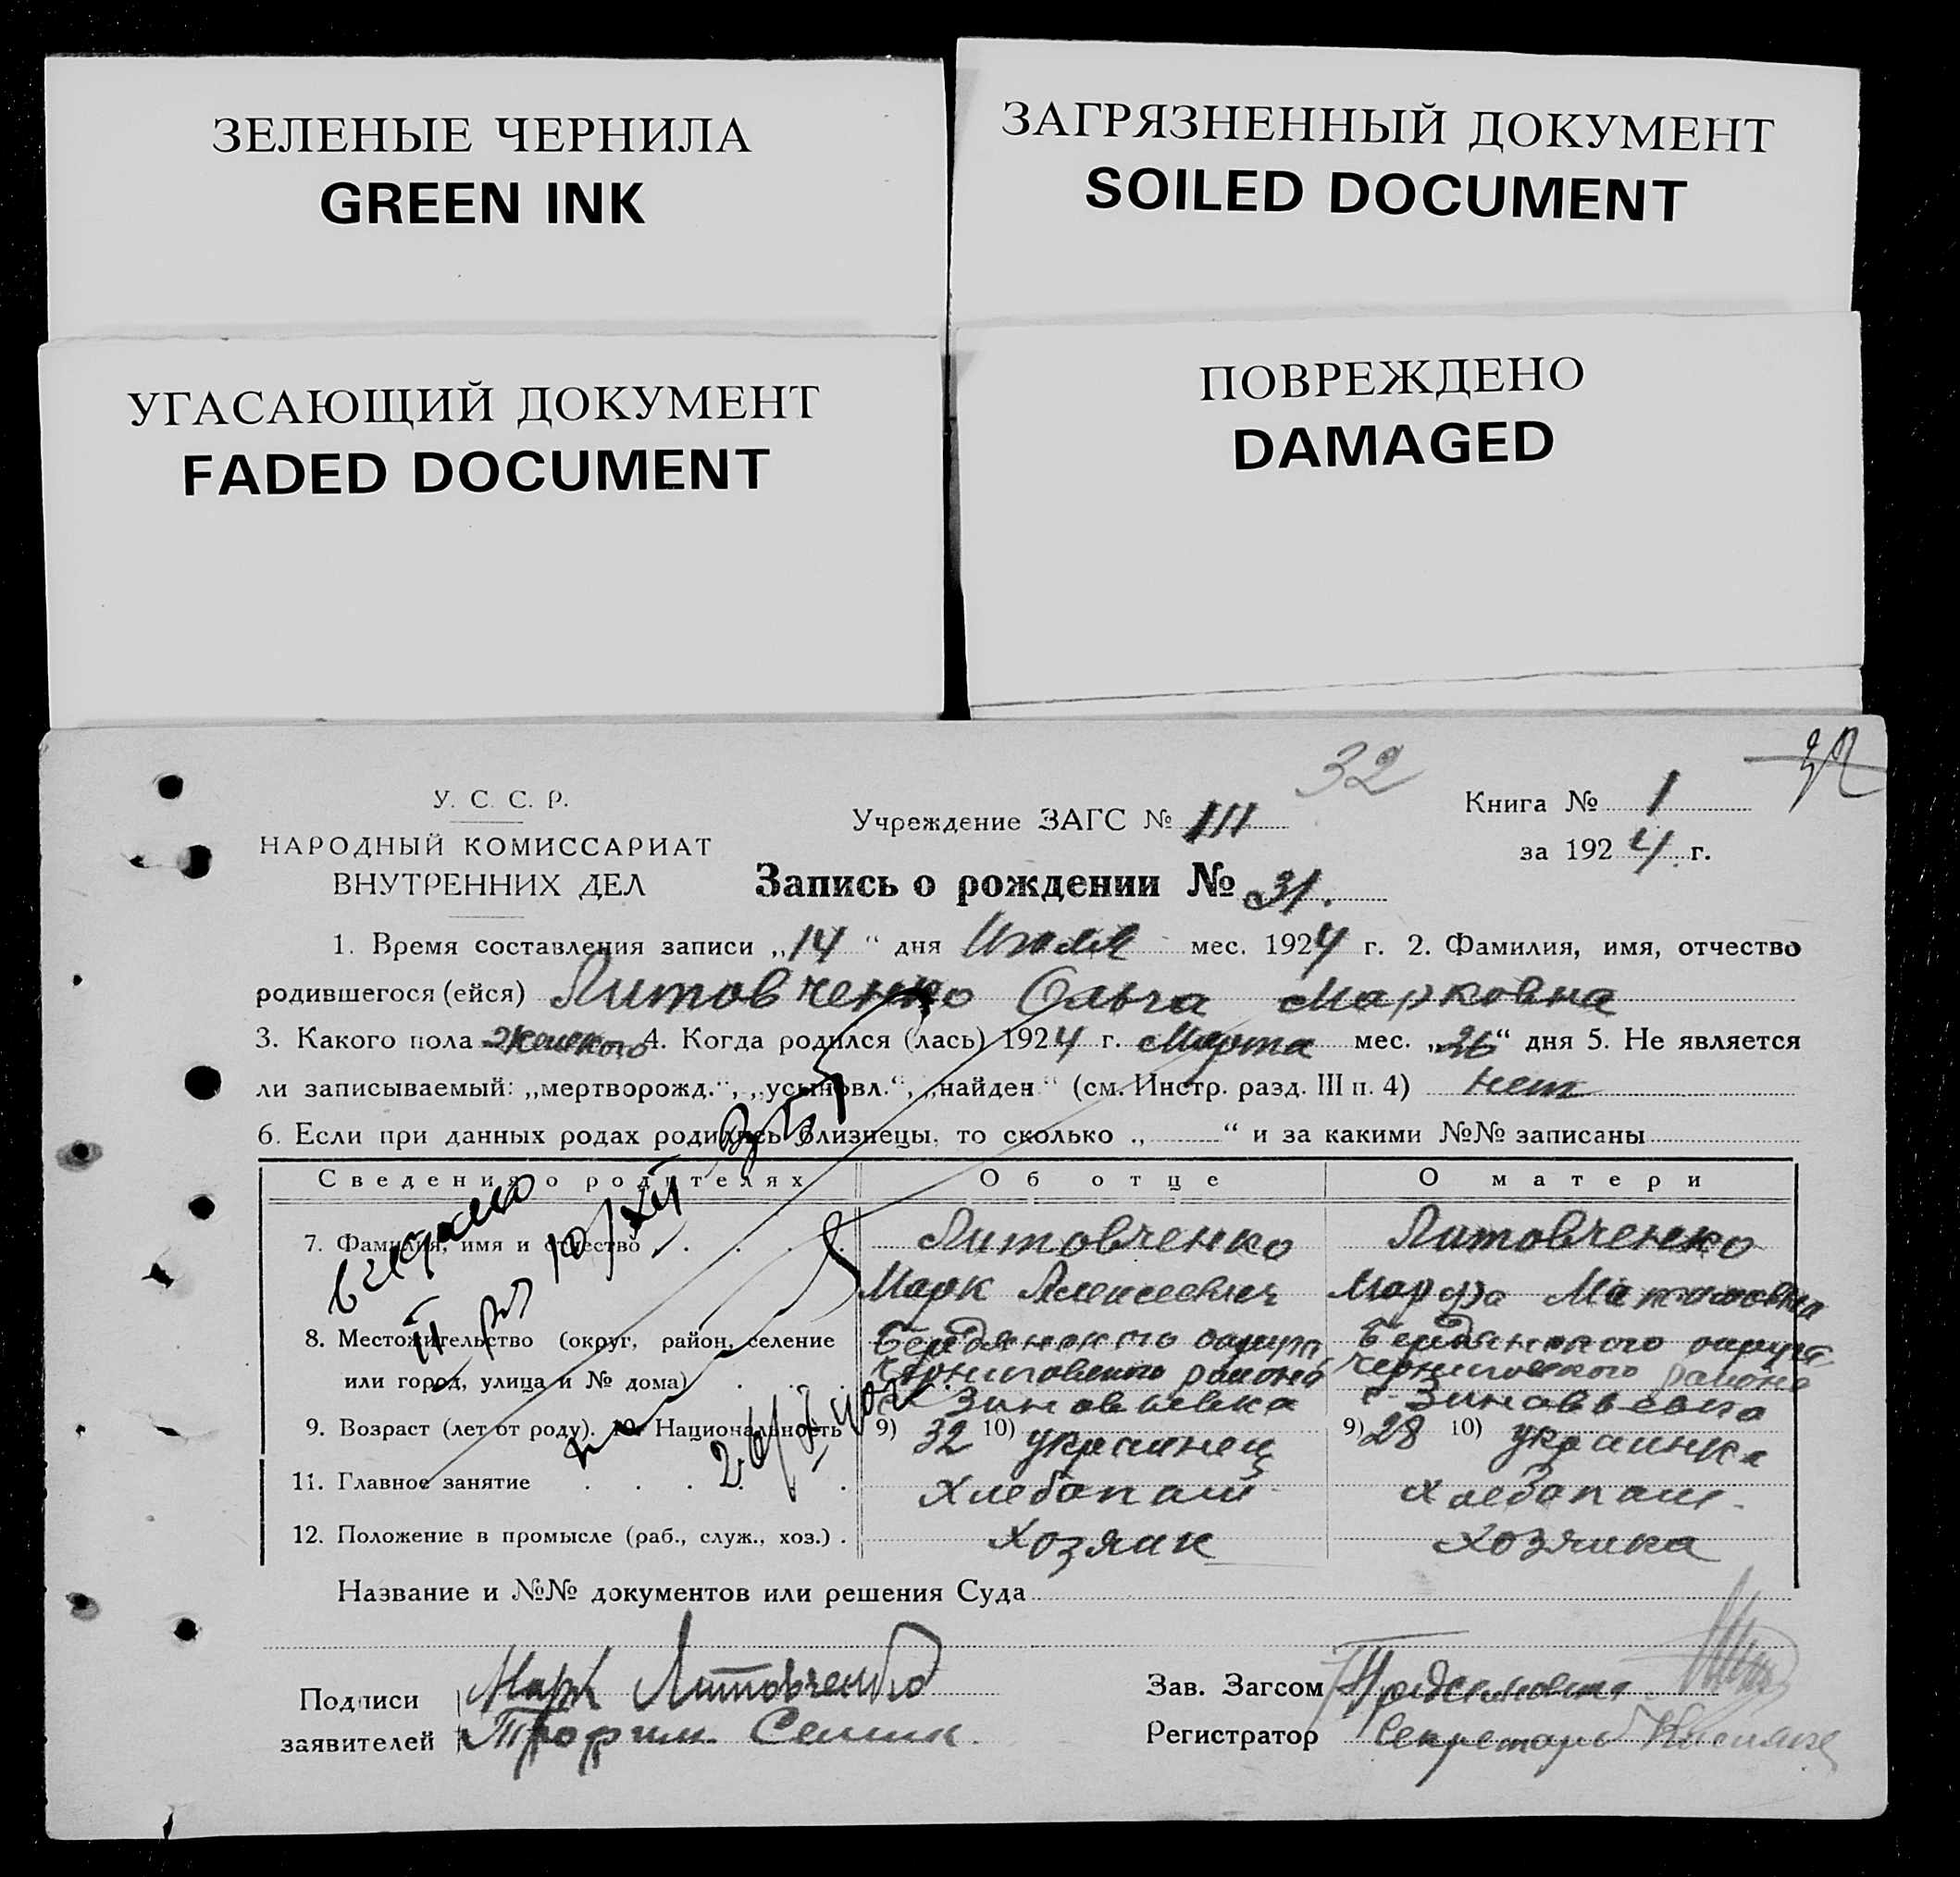 ЗЕЛЕНЫЕ ЧЕРНИЛА
GREEN INK
ЗАГРЯЗНЕННЫЙ ДОКУМЕНТ
SOILED DOCUMENT
УГАСАЮЩИЙ ДОКУМЕНТ
FADED DOCUMENT
ПОВРЕЖДЕНО
DAMAGED
32
32
У. С. С. Р.
НАРОДНЫЙ КОМИССАРИАТ
ВНУТРЕННИХ ДЕЛ
Учреждение ЗАГС № III
Книга № 1
за 1924 г.
Запись о рождении № 31.
1. Время составления записи „14“ дня Июля мес. 1924 г. 2. Фамилия, имя, отчество
родившегося (ейся) Литовченко Ольга Марковна
3. Какого пола женского 4. Когда родился (лась) 1924 г. Марта мес. „26“ дня 5. Не является
ли записываемый: „мертворожд.“, „усыновл.“, „найден“ (см. Инстр. разд. III п. 4) нет
6. Если при данных родах родились близнецы, то сколько „ “ и за какими №№ записаны
Сведения о родителях Об отце О матери
7. Фамилия, имя и отчество Литовченко Литовченко
Марк Алексеевич Марфа
8. Местожительство (округ, район, селение Бердянского округа Бердянского округа
или город, улица и № дома) Черниговского района Черниговского района
с. Зиновьевка с. Зиновьевка
9. Возраст (лет от роду). 10. Национальность 9) 32 10) украинец 9) 28 10) украинка
11. Главное занятие Хлебопаш. Хлебопаш.
12. Положение в промысле (раб., служ., хоз.) Хозяин Хозяйка
Название и №№ документов или решения Суда
Подписи Марк Литовченко
заявителей Трофим Семик
Зав. Загсом
Регистратор Секретарь
выдано
II 10/XII
26/X